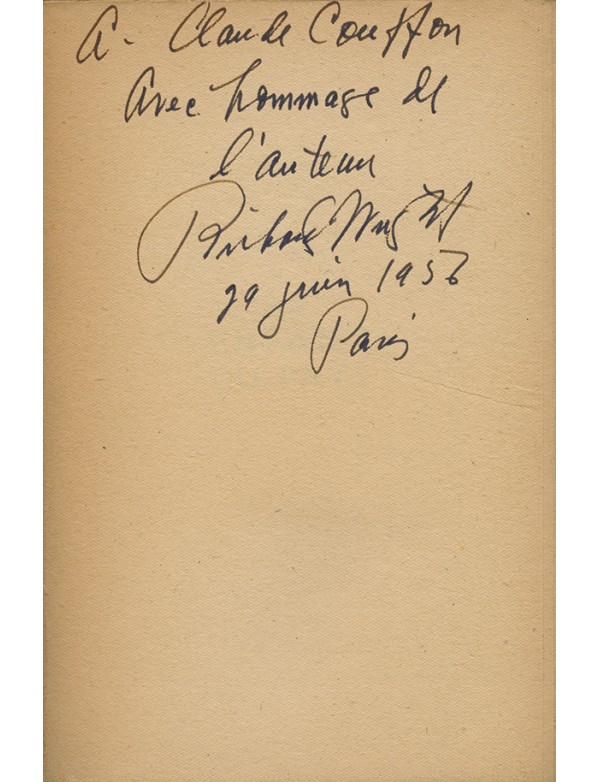 A - Claude Couffon
Avec hommage de
l'auteur
Richard Wright
29 juin 1956
Paris